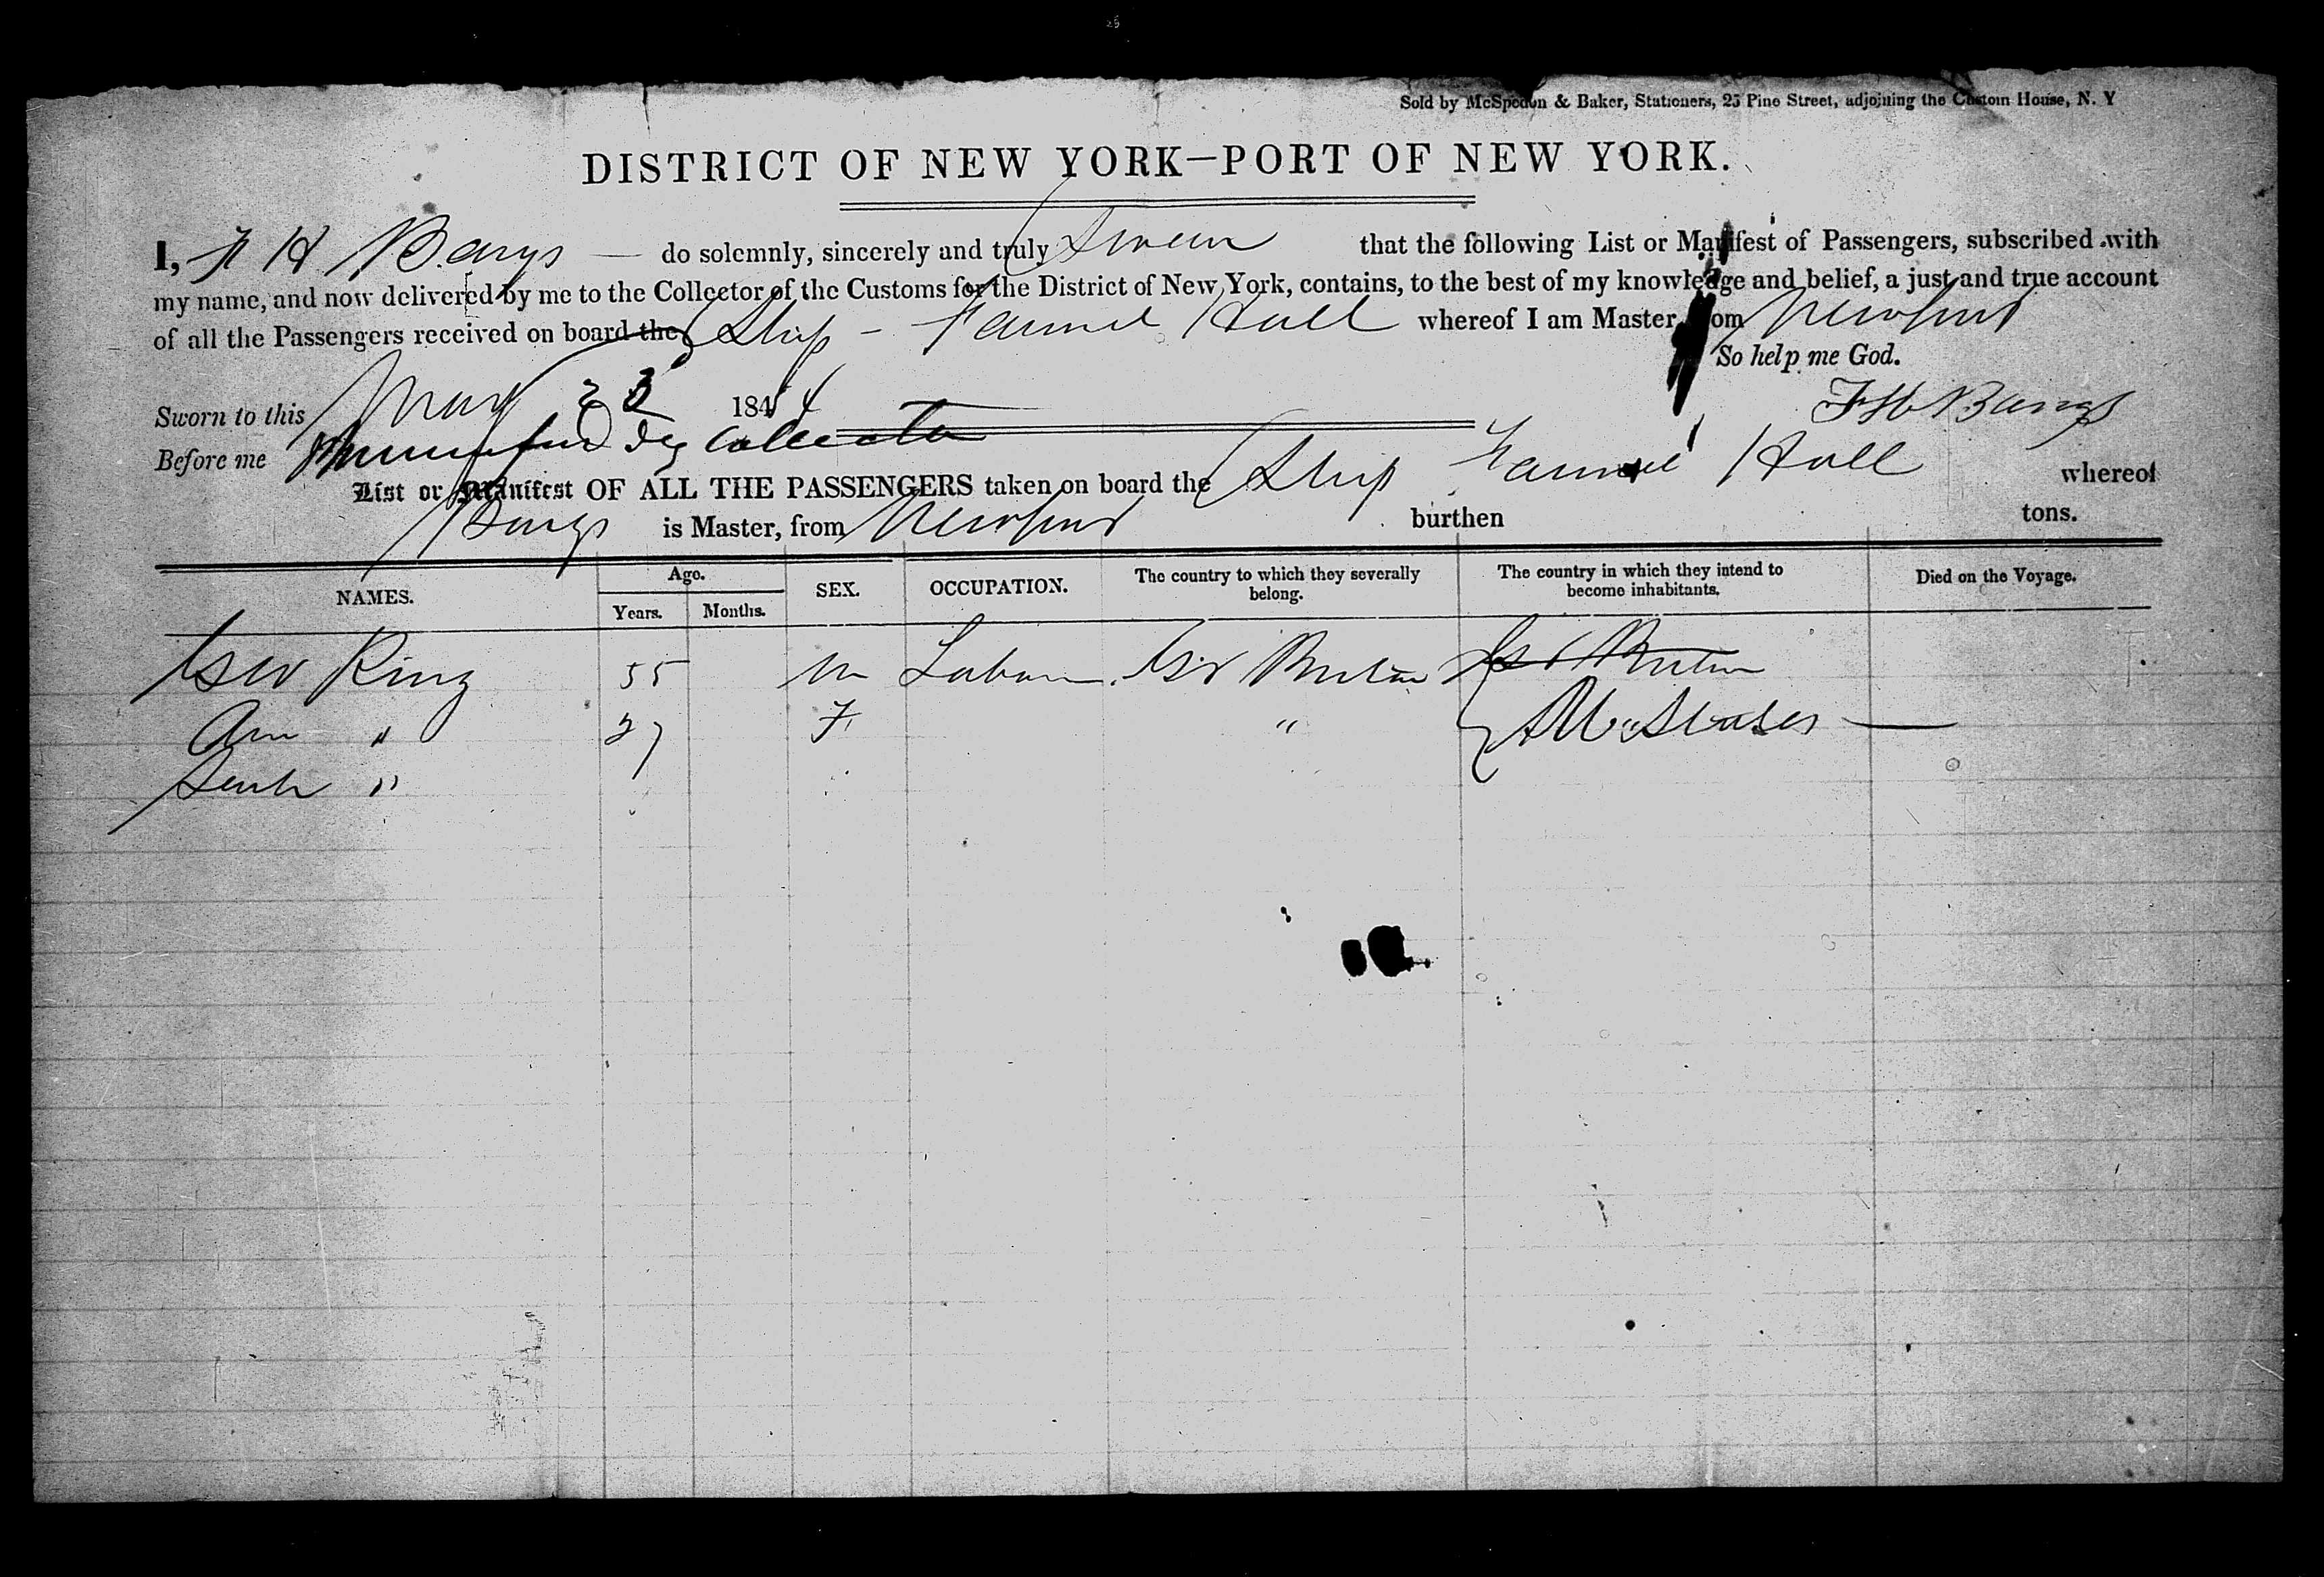 25
Sold by McSpedon & Baker, Stationers, 25 Pine Street, adjoining the Custom House, N. Y
DISTRICT OF NEW YORK—PORT OF NEW YORK.
I, F H Bangs — do solemnly, sincerely and truly Swear that the following List or Manifest of Passengers, subscribed with
my name, and now delivered by me to the Collector of the Customs for the District of New York, contains, to the best of my knowledge and belief, a just and true account
of all the Passengers received on board the Ship - Fanuel Hall whereof I am Master, from Newport
So help me God.
Sworn to this May 23 1854
F H Bangs
Before me Dep Collector
List or Manifest OF ALL THE PASSENGERS taken on board the Ship Fanuel Hall whereof
Bangs is Master, from Newport burthen tons.
NAMES. Age. Years. Months. SEX. OCCUPATION. The country to which they severally belong. The country in which they intend to become inhabitants. Died on the Voyage.
Geo King 55 M Labor Gt Britain Gt Britain
Ann " 27 F " U States —
"